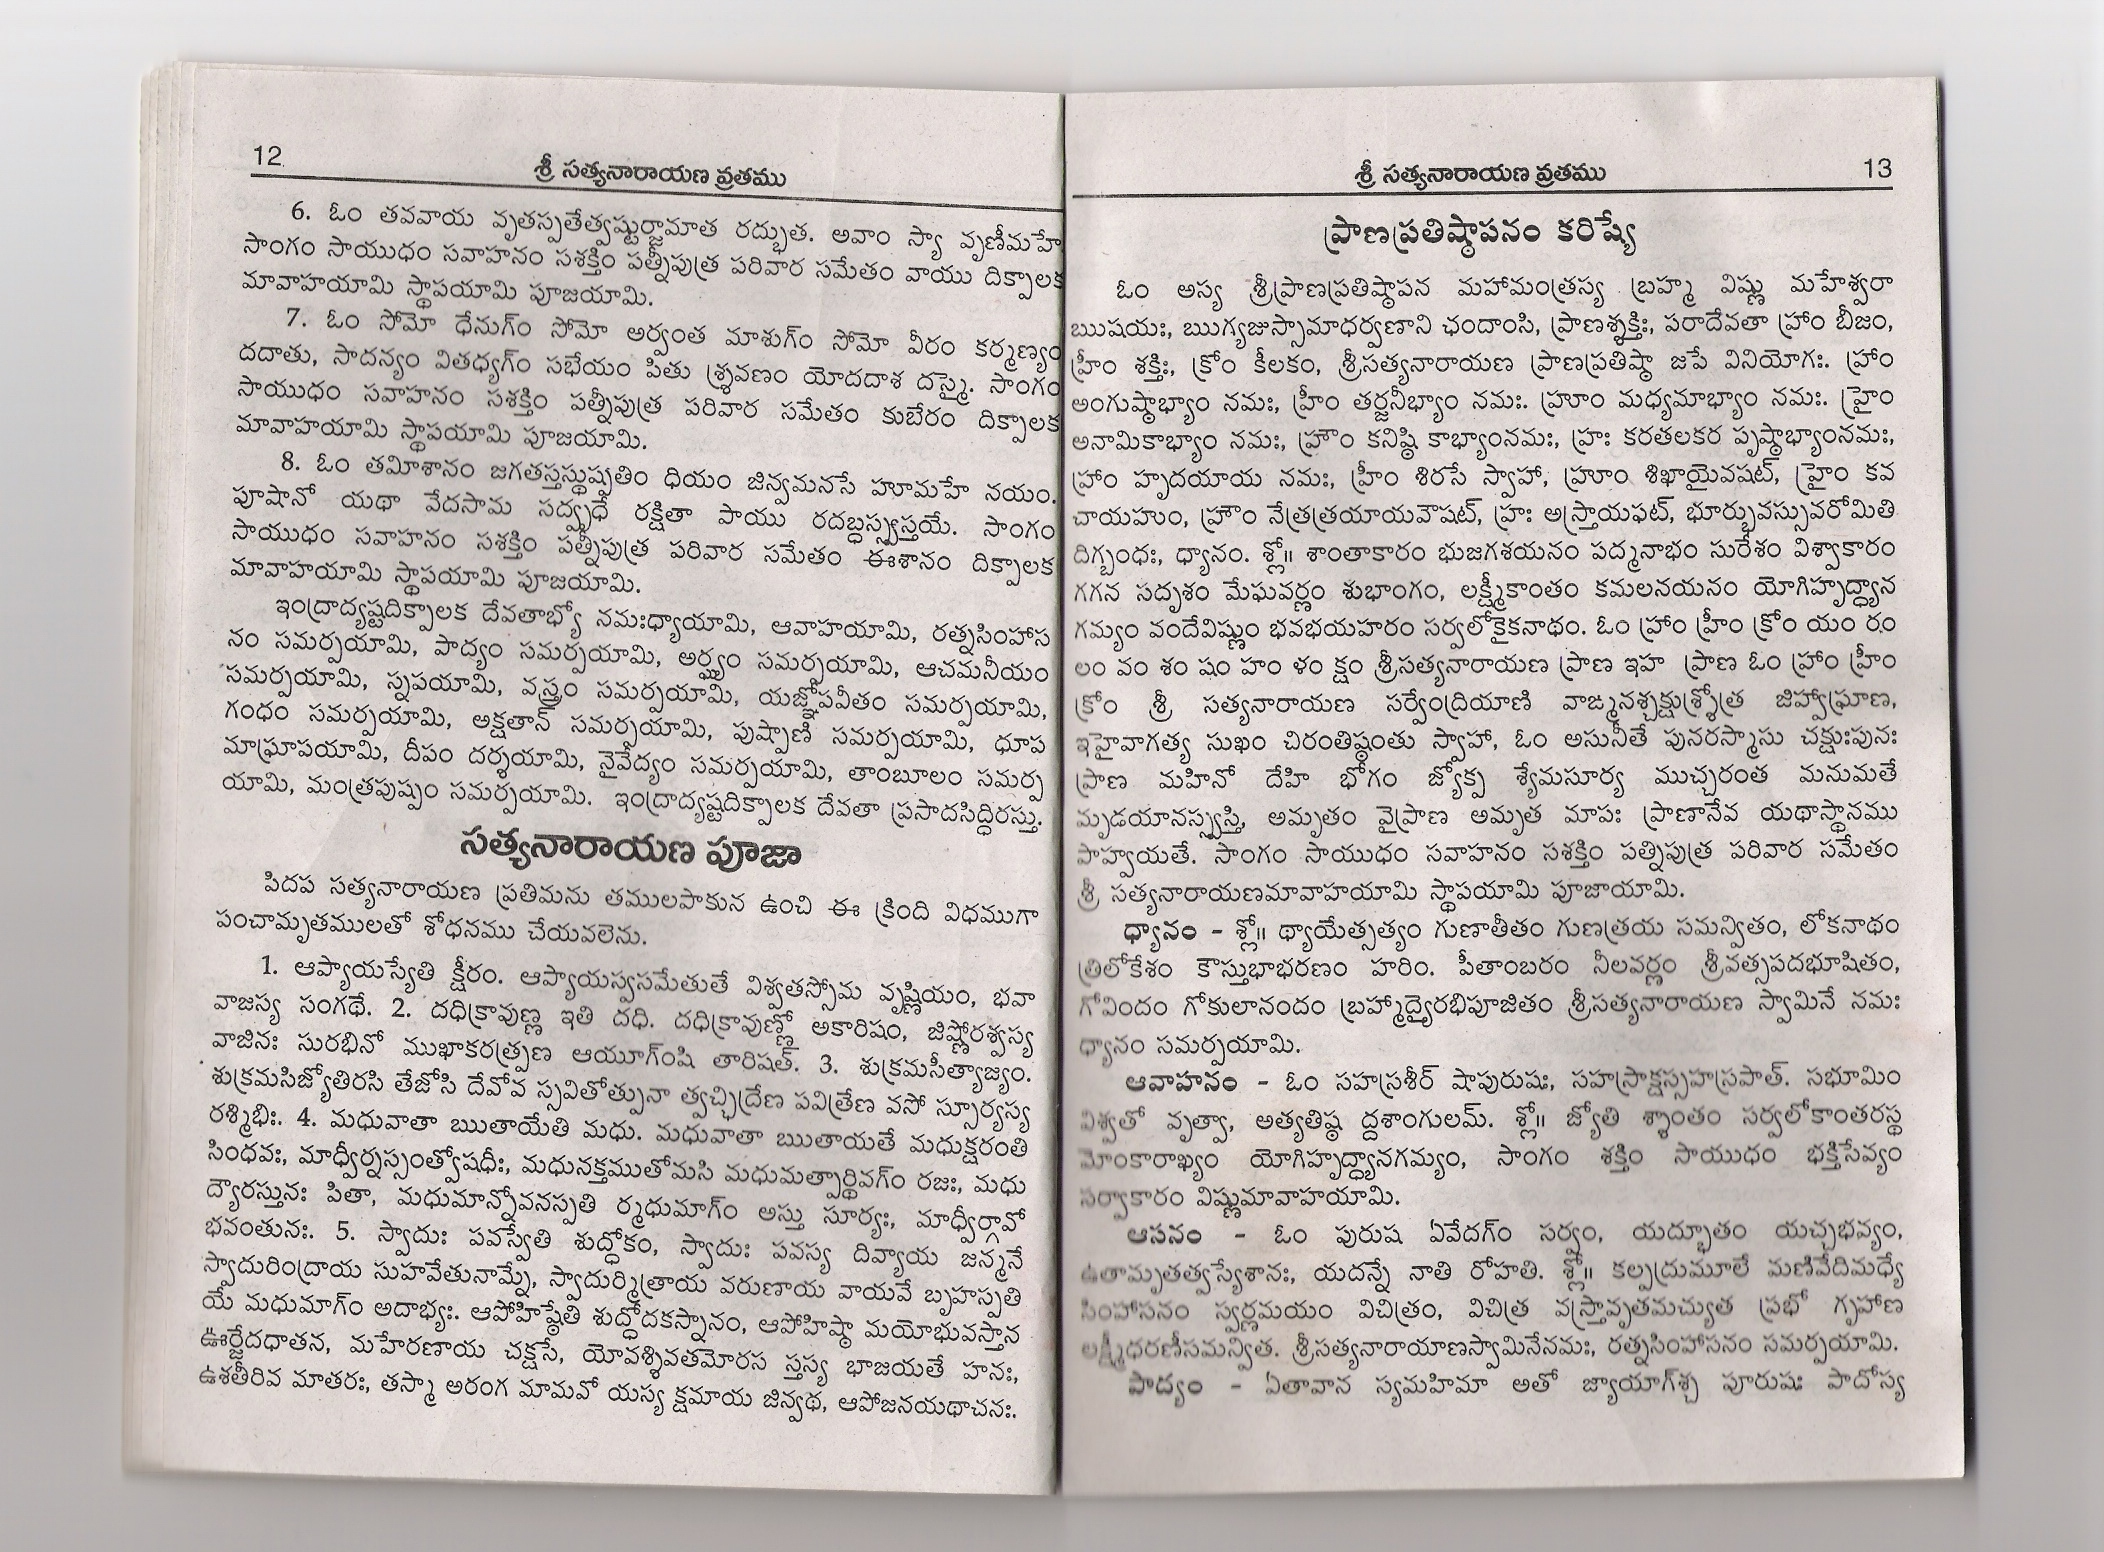 12
శ్రీ సత్యనారాయణ వ్రతము
6. ఓం తవవాయ వృతస్పతేత్వష్టుర్జామాత రద్భుత. అవాం స్యా వృణీమహే
సాంగం సాయుధం సవాహనం సశక్తిం పత్నీపుత్ర పరివార సమేతం వాయు దిక్పాలక
మావాహయామి స్థాపయామి పూజయామి.
7. ఓం సోమో ధేనుగ్‌ం సోమో అర్వంత మాశుగ్‌ం సోమో వీరం కర్మణ్యం
దదాతు, సాదన్యం వితధ్యగ్‌ం సభేయం పితు శ్శ్రవణం యోదదాశ దస్మై. సాంగం
సాయుధం సవాహనం సశక్తిం పత్నీపుత్ర పరివార సమేతం కుబేరం దిక్పాలక
మావాహయామి స్థాపయామి పూజయామి.
8. ఓం తమీశానం జగతస్తస్థుషృతిం ధియం జిన్వమనసే హూమహే నయం.
పూషానో యథా వేదసామ సద్వృధే రక్షితా పాయు రదబ్ధస్స్వస్తయే. సాంగం
సాయుధం సవాహనం సశక్తిం పత్నీపుత్ర పరివార సమేతం ఈశానం దిక్పాలక
మావాహయామి స్థాపయామి పూజయామి.
ఇంద్రాద్యష్టదిక్పాలక దేవతాభ్యో నమఃధ్యాయామి, ఆవాహయామి, రత్నసింహాస
నం సమర్పయామి, పాద్యం సమర్పయామి, అర్ఘ్యం సమర్పయామి, ఆచమనీయం
సమర్పయామి, స్నపయామి, వస్త్రం సమర్పయామి, యజ్ఞోపవీతం సమర్పయామి,
గంధం సమర్పయామి, అక్షతాన్ సమర్పయామి, పుష్పాణి సమర్పయామి, ధూప
మాఘ్రాపయామి, దీపం దర్శయామి, నైవేద్యం సమర్పయామి, తాంబూలం సమర్ప
యామి, మంత్రపుష్పం సమర్పయామి. ఇంద్రాద్యష్టదిక్పాలక దేవతా ప్రసాదసిద్ధిరస్తు.
సత్యనారాయణ పూజా
పిదప సత్యనారాయణ ప్రతిమను తములపాకున ఉంచి ఈ క్రింది విధముగా
పంచామృతములతో శోధనము చేయవలెను.
1. ఆప్యాయస్యేతి క్షీరం. ఆప్యాయస్వసమేతుతే విశ్వతస్సోమ వృష్ణియం, భవా
వాజస్య సంగథే. 2. దధిక్రావుణ్ణ ఇతి దధి. దధిక్రావుణ్ణో అకారిషం, జిష్ణోరశ్వస్య
వాజినః సురభినో ముఖాకరత్ప్రణ ఆయూగ్‌ంషి తారిషత్. 3. శుక్రమసీత్యాజ్యం.
శుక్రమసిజ్యోతిరసి తేజోసి దేవోవ స్సవితోత్పునా త్వచ్ఛిద్రేణ పవిత్రేణ వసో స్సూర్యస్య
రశ్మిభిః. 4. మధువాతా ఋతాయేతి మధు. మధువాతా ఋతాయతే మధుక్షరంతి
సింధవః, మాధ్వీర్నస్సంత్వోషధీః, మధునక్తముతోమసి మధుమత్పార్థివగ్‌ం రజః, మధు
ద్యౌరస్తునః పితా, మధుమాన్నోవనస్పతి ర్మధుమాగ్‌ం అస్తు సూర్యః, మాధ్వీర్గావో
భవంతునః. 5. స్వాదుః పవస్వేతి శుద్ధోకం, స్వాదుః పవస్య దివ్యాయ జన్మనే
స్వాదురింద్రాయ సుహవేతునామ్నే, స్వాదుర్మిత్రాయ వరుణాయ వాయవే బృహస్పతి
యే మధుమాగ్‌ం అదాభ్యః. ఆపోహిష్ఠేతి శుద్ధోదకస్నానం, ఆపోహిష్ఠా మయోభువస్తాన
ఊర్జేదధాతన, మహేరణాయ చక్షసే, యోవశ్శివతమోరస స్తస్య భాజయతే హనః,
ఉశతీరివ మాతరః, తస్మా అరంగ మామవో యస్య క్షమాయ జిన్వథ, ఆపోజనయథాచనః.
శ్రీ సత్యనారాయణ వ్రతము
13
ప్రాణప్రతిష్ఠాపనం కరిష్యే
ఓం అస్య శ్రీప్రాణప్రతిష్ఠాపన మహామంత్రస్య బ్రహ్మ విష్ణు మహేశ్వరా
ఋషయః, ఋగ్యజుస్సామాధర్వణాని ఛందాంసి, ప్రాణశ్శక్తిః, పరాదేవతా హ్రాం బీజం,
హ్రీం శక్తిః, క్రోం కీలకం, శ్రీసత్యనారాయణ ప్రాణప్రతిష్ఠా జపే వినియోగః. హ్రాం
అంగుష్ఠాభ్యాం నమః, హ్రీం తర్జనీభ్యాం నమః. హ్రూం మధ్యమాభ్యాం నమః. హ్రైం
అనామికాభ్యాం నమః, హ్రౌం కనిష్ఠి కాభ్యాంనమః, హ్రః కరతలకర పృష్ఠాభ్యాంనమః,
హ్రాం హృదయాయ నమః, హ్రీం శిరసే స్వాహా, హ్రూం శిఖాయైవషట్, హ్రైం కవ
చాయహుం, హ్రౌం నేత్రత్రయాయవౌషట్, హ్రః అస్త్రాయఫట్, భూర్భువస్సువరోమితి
దిగ్బంధః, ధ్యానం. శ్లో॥ శాంతాకారం భుజగశయనం పద్మనాభం సురేశం విశ్వాకారం
గగన సదృశం మేఘవర్ణం శుభాంగం, లక్ష్మీకాంతం కమలనయనం యోగిహృద్ధ్యాన
గమ్యం వందేవిష్ణుం భవభయహరం సర్వలోకైకనాథం. ఓం హ్రాం హ్రీం క్రోం యం రం
లం వం శం షం హం ళం క్షం శ్రీసత్యనారాయణ ప్రాణ ఇహ ప్రాణ ఓం హ్రాం హ్రీం
క్రోం శ్రీ సత్యనారాయణ సర్వేంద్రియాణి వాఙ్మనశ్చక్షుశ్శ్రోత్ర జిహ్వాఘ్రాణ,
ఇహైవాగత్య సుఖం చిరంతిష్ఠంతు స్వాహా, ఓం అసునీతే పునరస్మాసు చక్షుఃపునః
ప్రాణ మహినో దేహి భోగం జ్యోక్ప శ్యేమసూర్య ముచ్చరంత మనుమతే
మృడయానస్స్వస్తి, అమృతం వైప్రాణ అమృత మాపః ప్రాణానేవ యథాస్థానము
పాహ్వయతే. సాంగం సాయుధం సవాహనం సశక్తిం పత్నిపుత్ర పరివార సమేతం
శ్రీ సత్యనారాయణమావాహయామి స్థాపయామి పూజాయామి.
ధ్యానం - శ్లో॥ థ్యాయేత్సత్యం గుణాతీతం గుణత్రయ సమన్వితం, లోకనాథం
త్రిలోకేశం కౌస్తుభాభరణం హరిం. పీతాంబరం నీలవర్ణం శ్రీవత్సపదభూషితం,
గోవిందం గోకులానందం బ్రహ్మాద్యైరభిపూజితం శ్రీసత్యనారాయణ స్వామినే నమః
ధ్యానం సమర్పయామి.
ఆవాహనం - ఓం సహస్రశీర్ షాపురుషః, సహస్రాక్షస్సహస్రపాత్. సభూమిం
విశ్వతో వృత్వా, అత్యతిష్ఠ ద్దశాంగులమ్. శ్లో॥ జ్యోతి శ్శాంతం సర్వలోకాంతరస్థ
మోంకారాఖ్యం యోగిహృద్ధ్యానగమ్యం, సాంగం శక్తిం సాయుధం భక్తిసేవ్యం
సర్వాకారం విష్ణుమావాహయామి.
ఆసనం - ఓం పురుష ఏవేదగ్‌ం సర్వం, యద్భూతం యచ్చభవ్యం,
ఉతామృతత్వస్యేశానః, యదన్నే నాతి రోహతి. శ్లో॥ కల్పద్రుమూలే మణివేదిమధ్యే
సింహాసనం స్వర్ణమయం విచిత్రం, విచిత్ర వస్త్రావృతమచ్యుత ప్రభో గృహాణ
లక్ష్మీధరణీసమన్విత. శ్రీసత్యనారాయాణస్వామినేనమః, రత్నసింహాసనం సమర్పయామి.
పాద్యం - ఏతావాన స్యమహిమా అతో జ్యాయాగ్‌శ్చ పూరుషః పాదోస్య